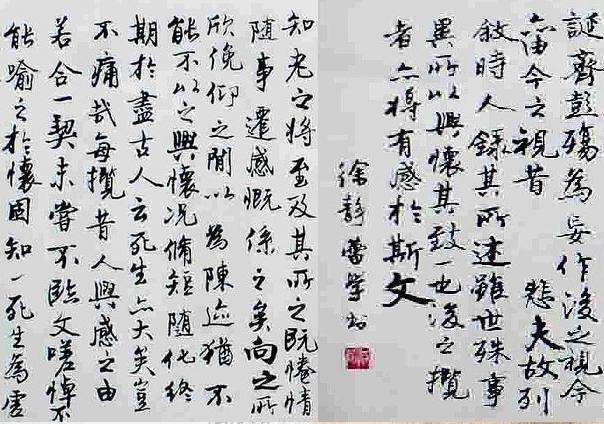 知老之将至及其所之既惓情
隨事遷感慨係之矣向之所
欣俛仰之間以為陳迹猶不
能不以之興懷况脩短隨化終
期於盡古人云死生亦大矣豈
不痛哉每攬昔人興感之由
若合一契未嘗不臨文嗟悼不
能喻之於懷固知一死生為虛
誕齊彭殤為妄作後之視今
亦由今之視昔 悲夫故列
敘時人錄其所述雖世殊事
異所以興懷其致一也後之攬
者亦將有感於斯文
徐静蕾學书